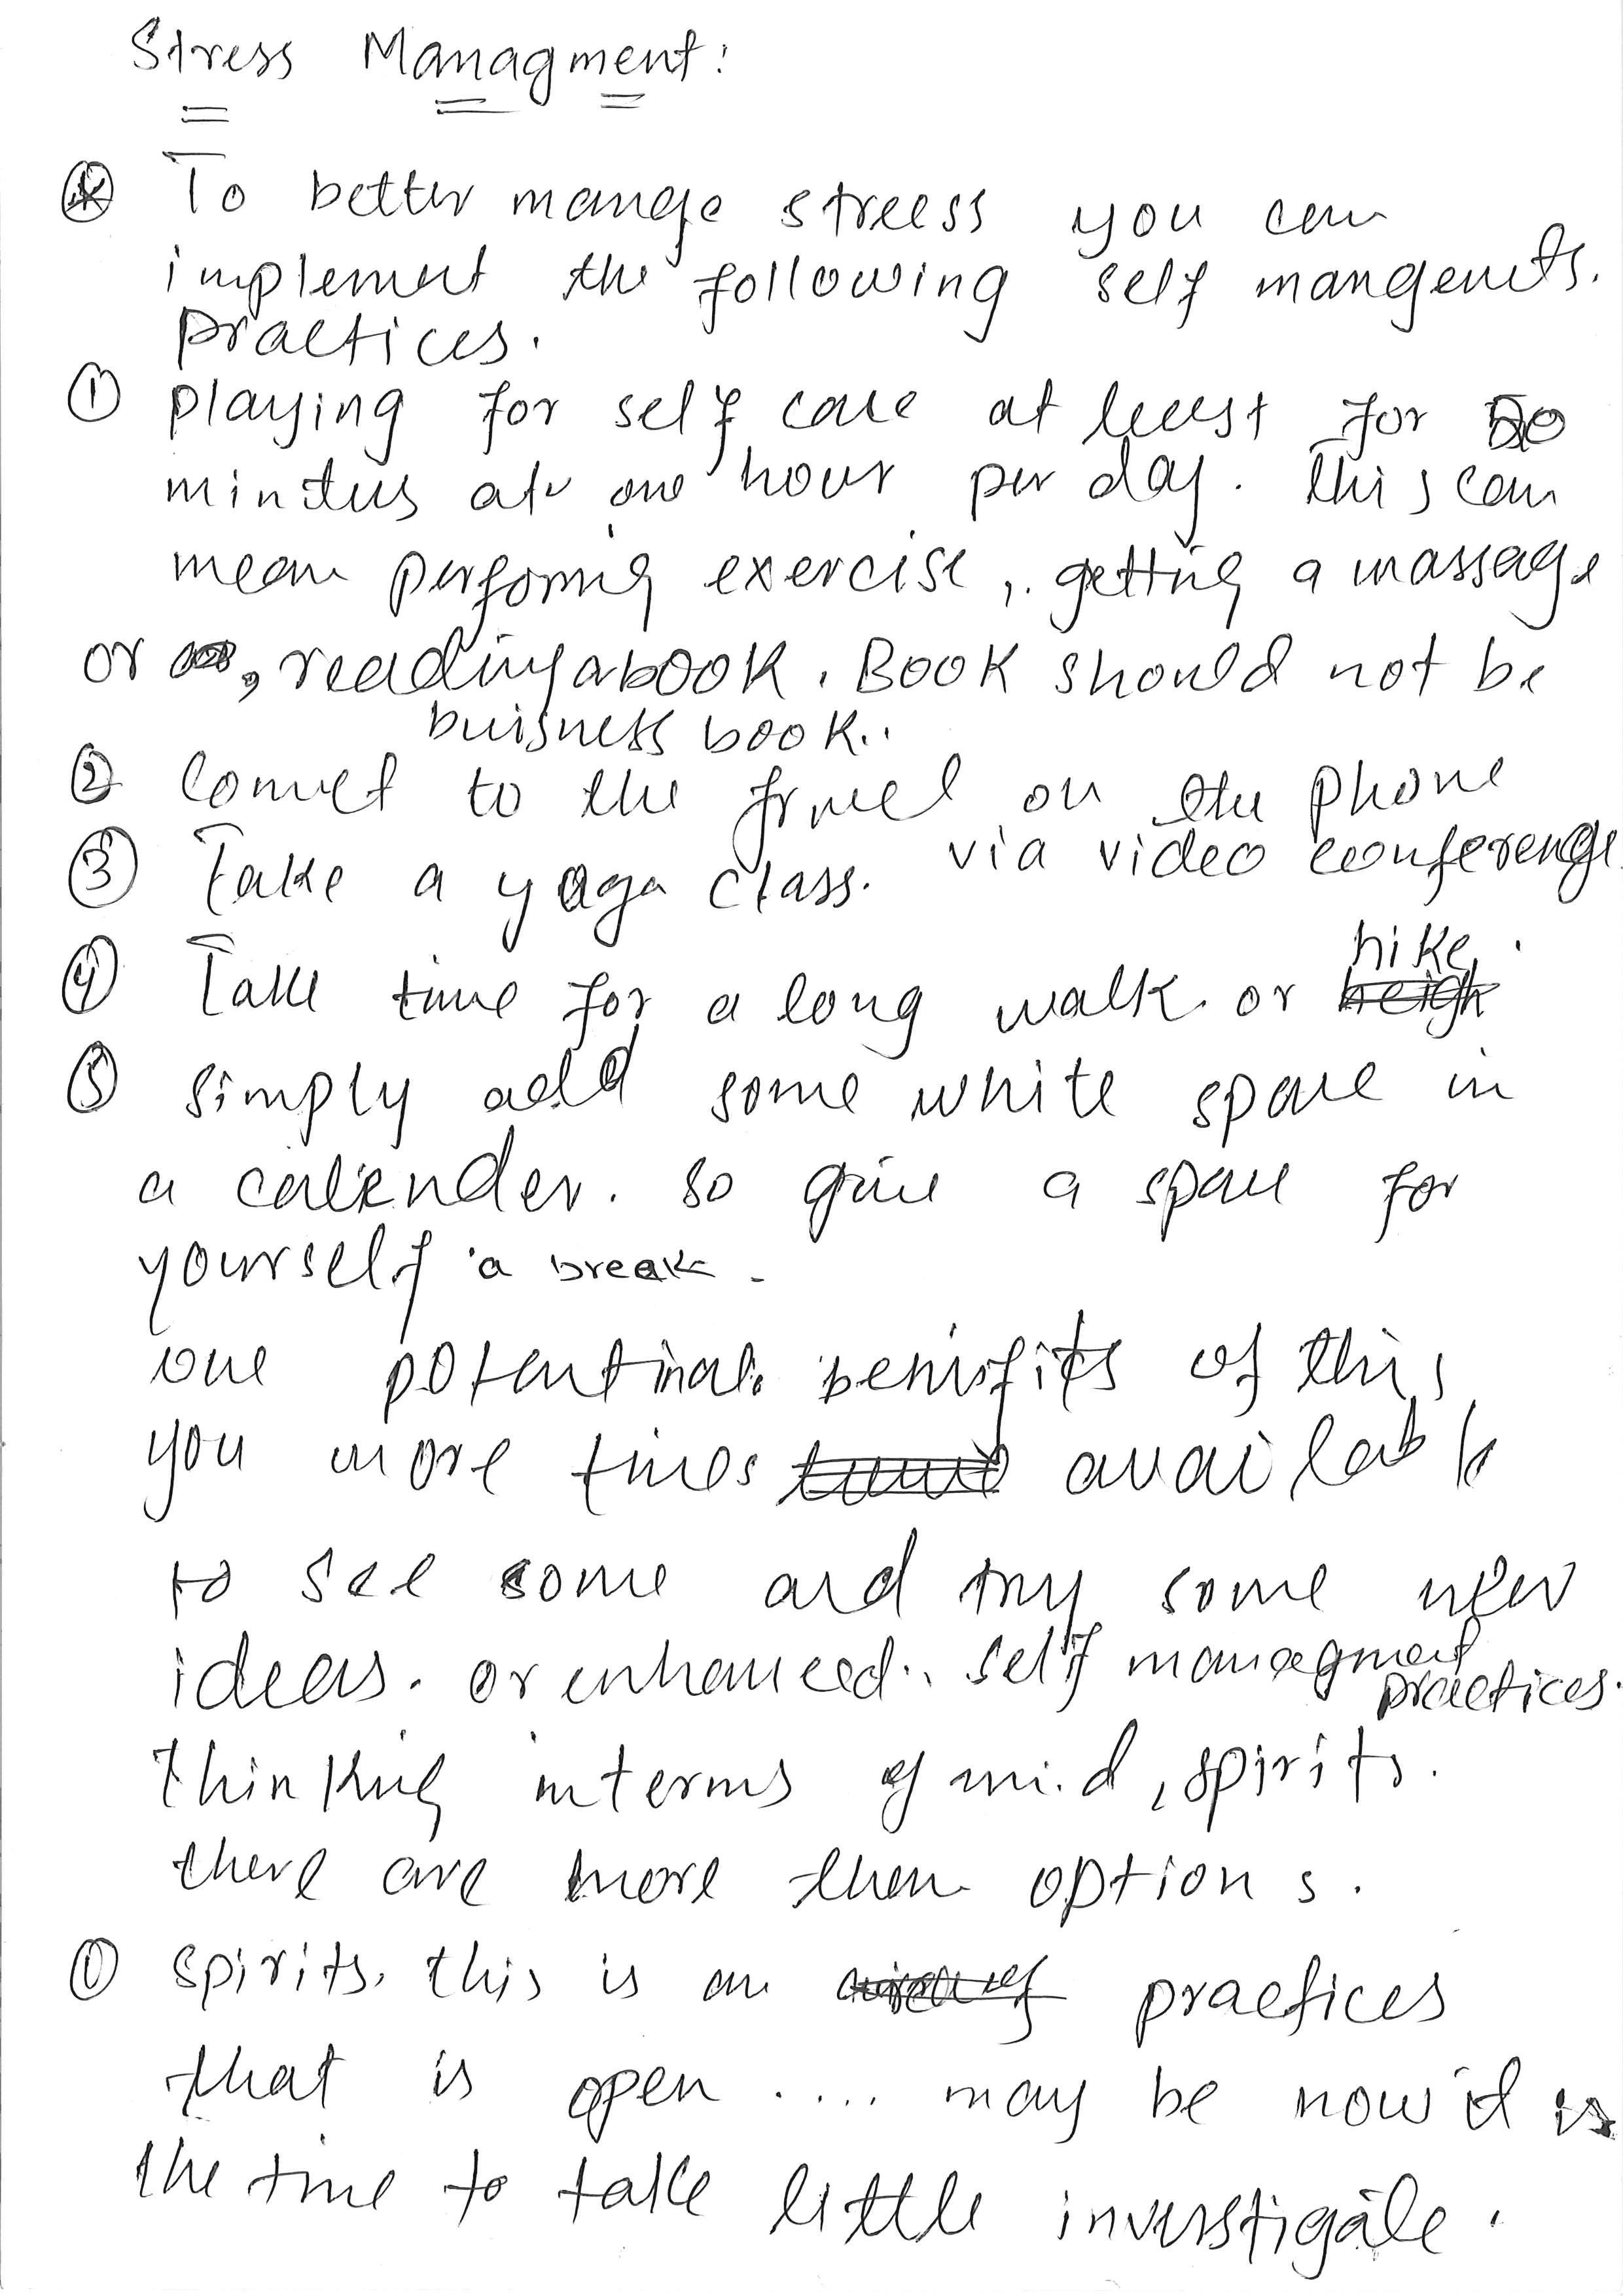 Stress Managment:
To better mange streess you can
implement the following self mangemets.
practices.
① playing for self care at least for
mintus one hour per day. this can
mean perfoming exercise, getting a massage
or , reading a book. Book should not be
buisness book..
② to the on the phone
via video conference
③ Take a yoga class.
hike.
④ Take time for a long walk or
⑤ simply add some white space in
a calender. so give a space for
yourself a break.
one potential benifits of this
you more times available
to see some and try some new
ideas. or enhanced. self managment
practices.
thinking in terms of mind, spirits.
there are more then options.
① spirits. this is an practices
that is open .... may be now it is
the time to take little investigate.